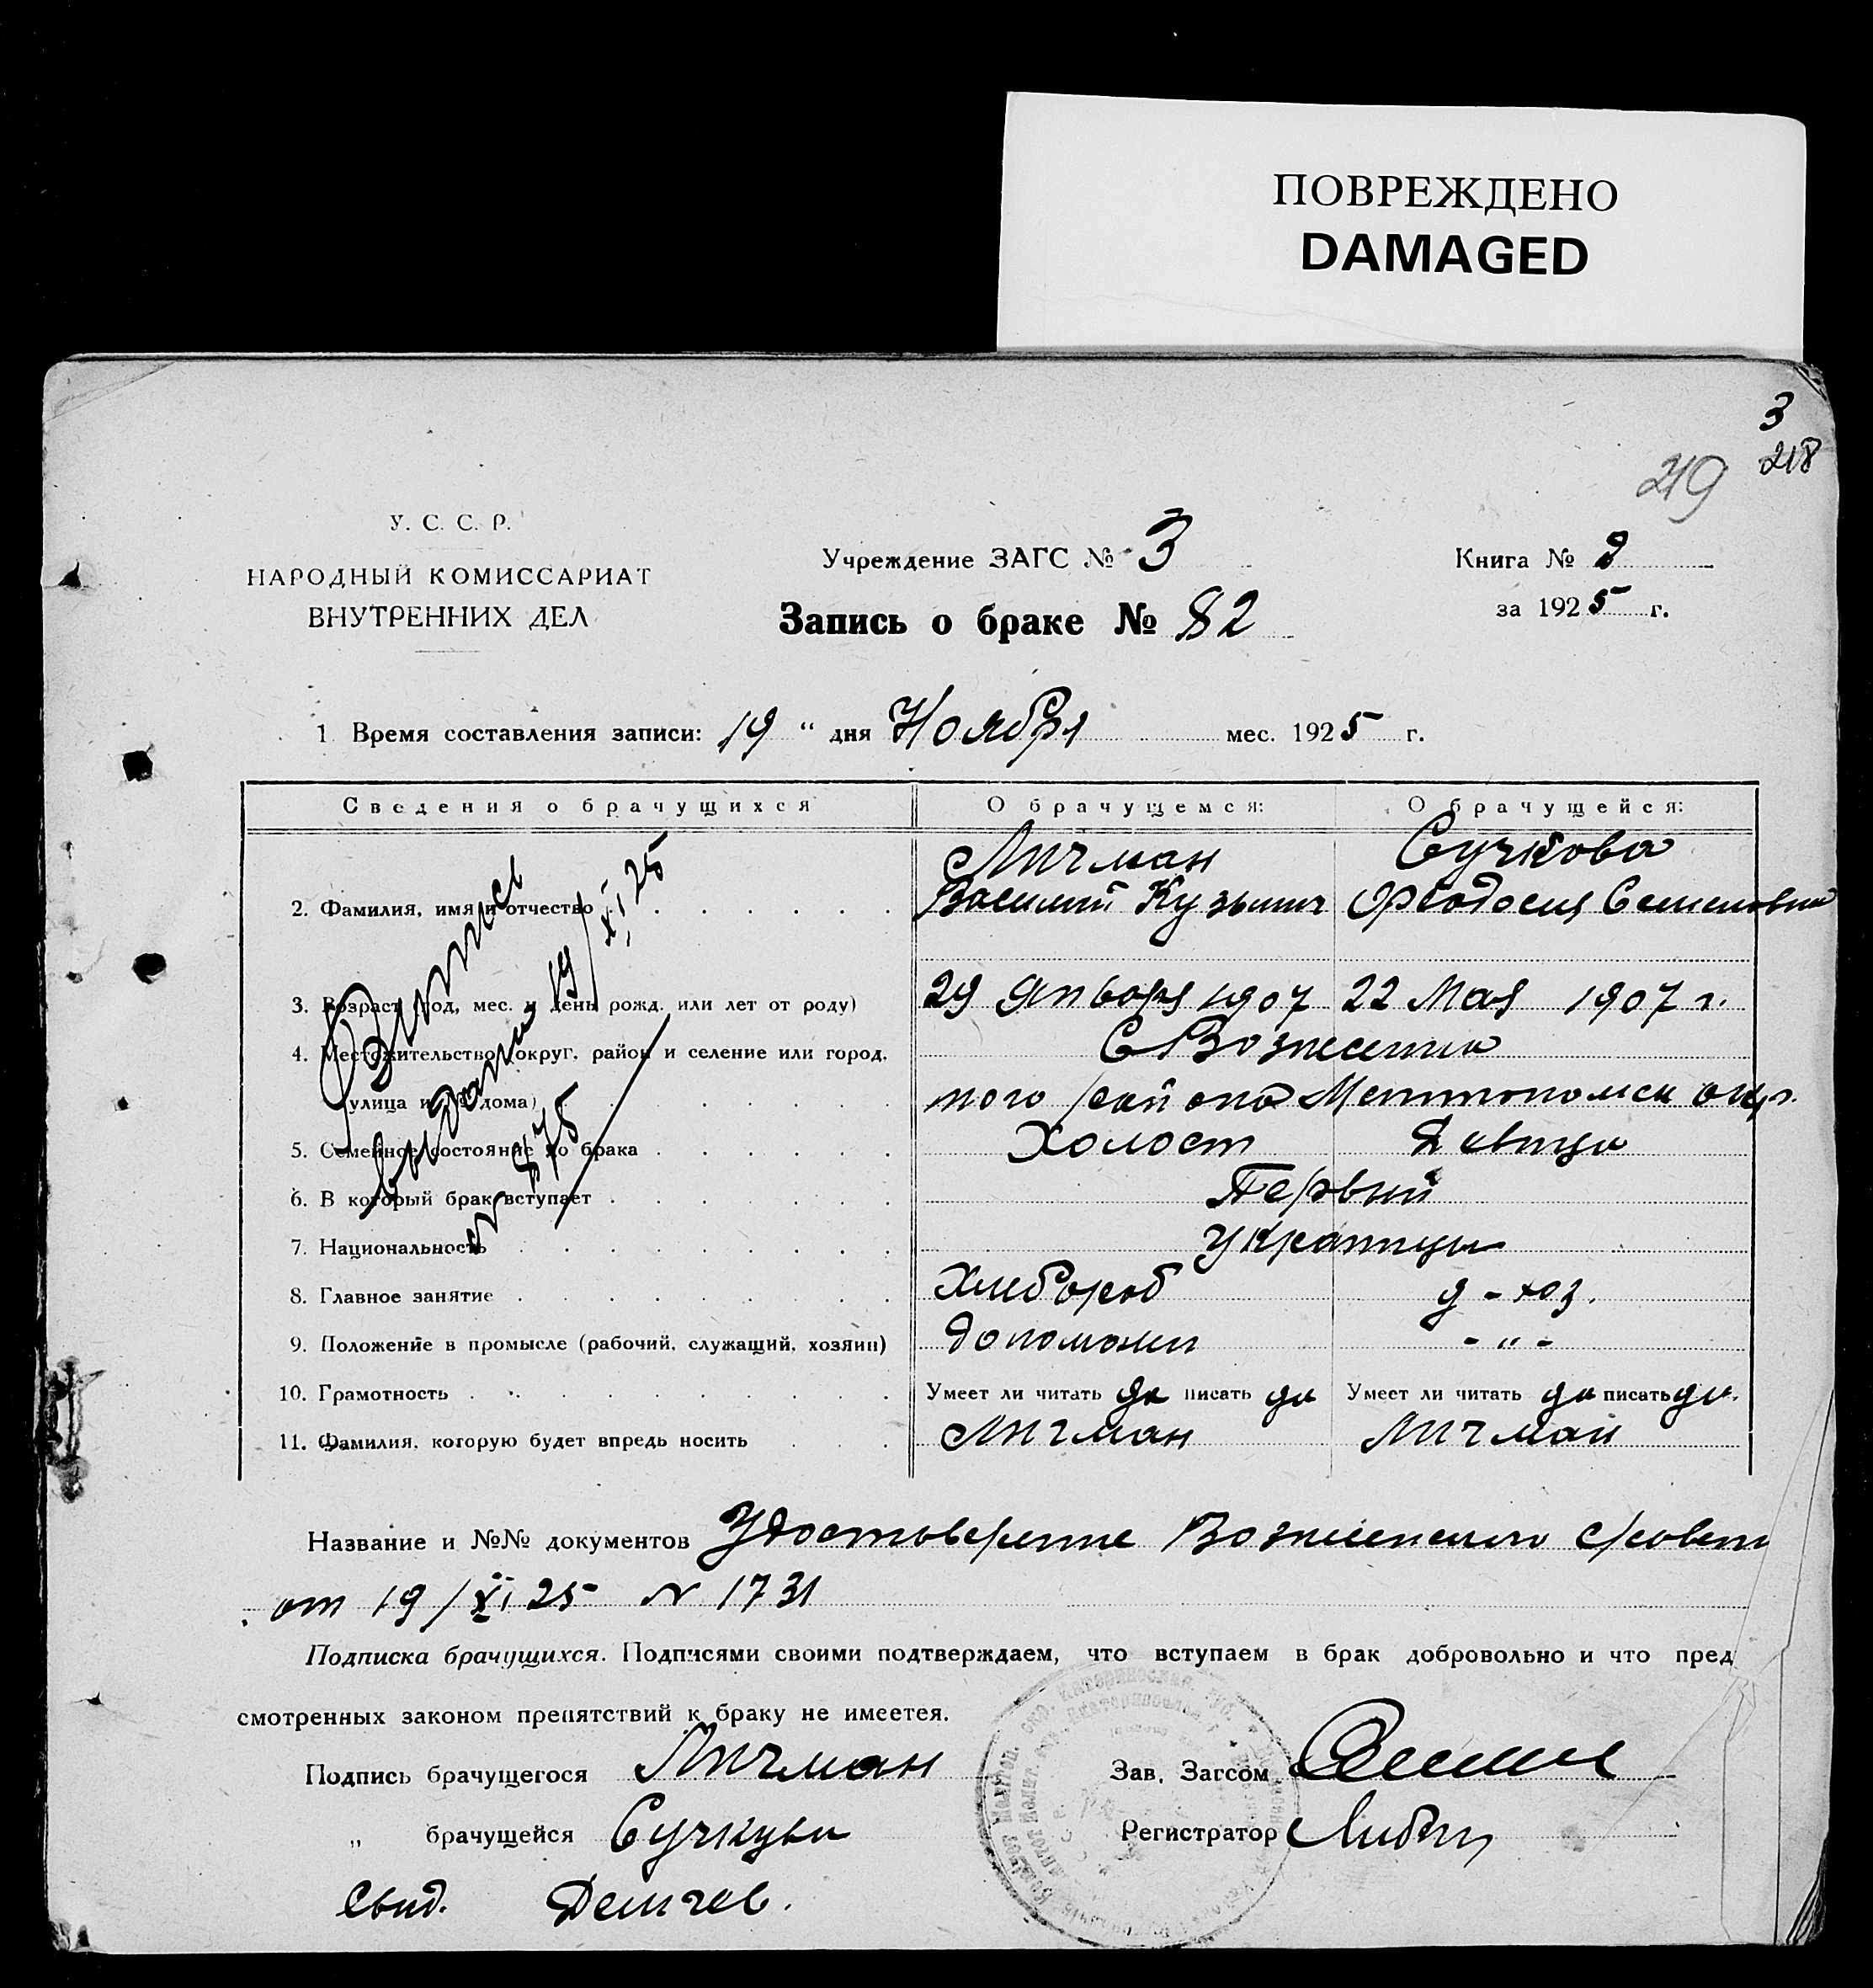 ПОВРЕЖДЕНО
DAMAGED
3
218
219
У. С. С. Р.
НАРОДНЫЙ КОМИССАРИАТ
ВНУТРЕННИХ ДЕЛ
Учреждение ЗАГС № 3
Запись о браке № 82
Книга № 2
за 1925 г.
1 Время составления записи: 19 “ дня Ноября мес. 1925 г.
Сведения о брачущихся О брачущемся: О брачущейся:
Личман Сучкова
2. Фамилия, имя и отчество Василий Кузьмич Феодосия Семеновна
3. Возраст (год, мес. и день рожд. или лет от роду) 29 Января 1907 22 Мая 1907 г.
4. Местожительство (округ, район и селение или город, С Вознесенка
улица и № дома) того района Мелитопольск окр.
5. Семейное состояние до брака Холост Девица
6. В который брак вступает Первый
7. Национальность Украинцы
8. Главное занятие Хлебороб д - хоз.
9. Положение в промысле (рабочий, служащий, хозяин) - „ -
10. Грамотность Умеет ли читать да писать да Умеет ли читать да писать да.
11. Фамилия, которую будет впредь носить Личман Личман
Выпись
выдана 19/XI 25
N 875
Название и №№ документов Удостоверение Вознесенского с/совета
от 19/XI 25 N 1731
Подписка брачущихся. Подписями своими подтверждаем, что вступаем в брак добровольно и что пред
смотренных законом препятствий к браку не имеется.
Подпись брачущегося Личман Зав. Загсом
„ брачущейся Сучкова Регистратор
Свид.